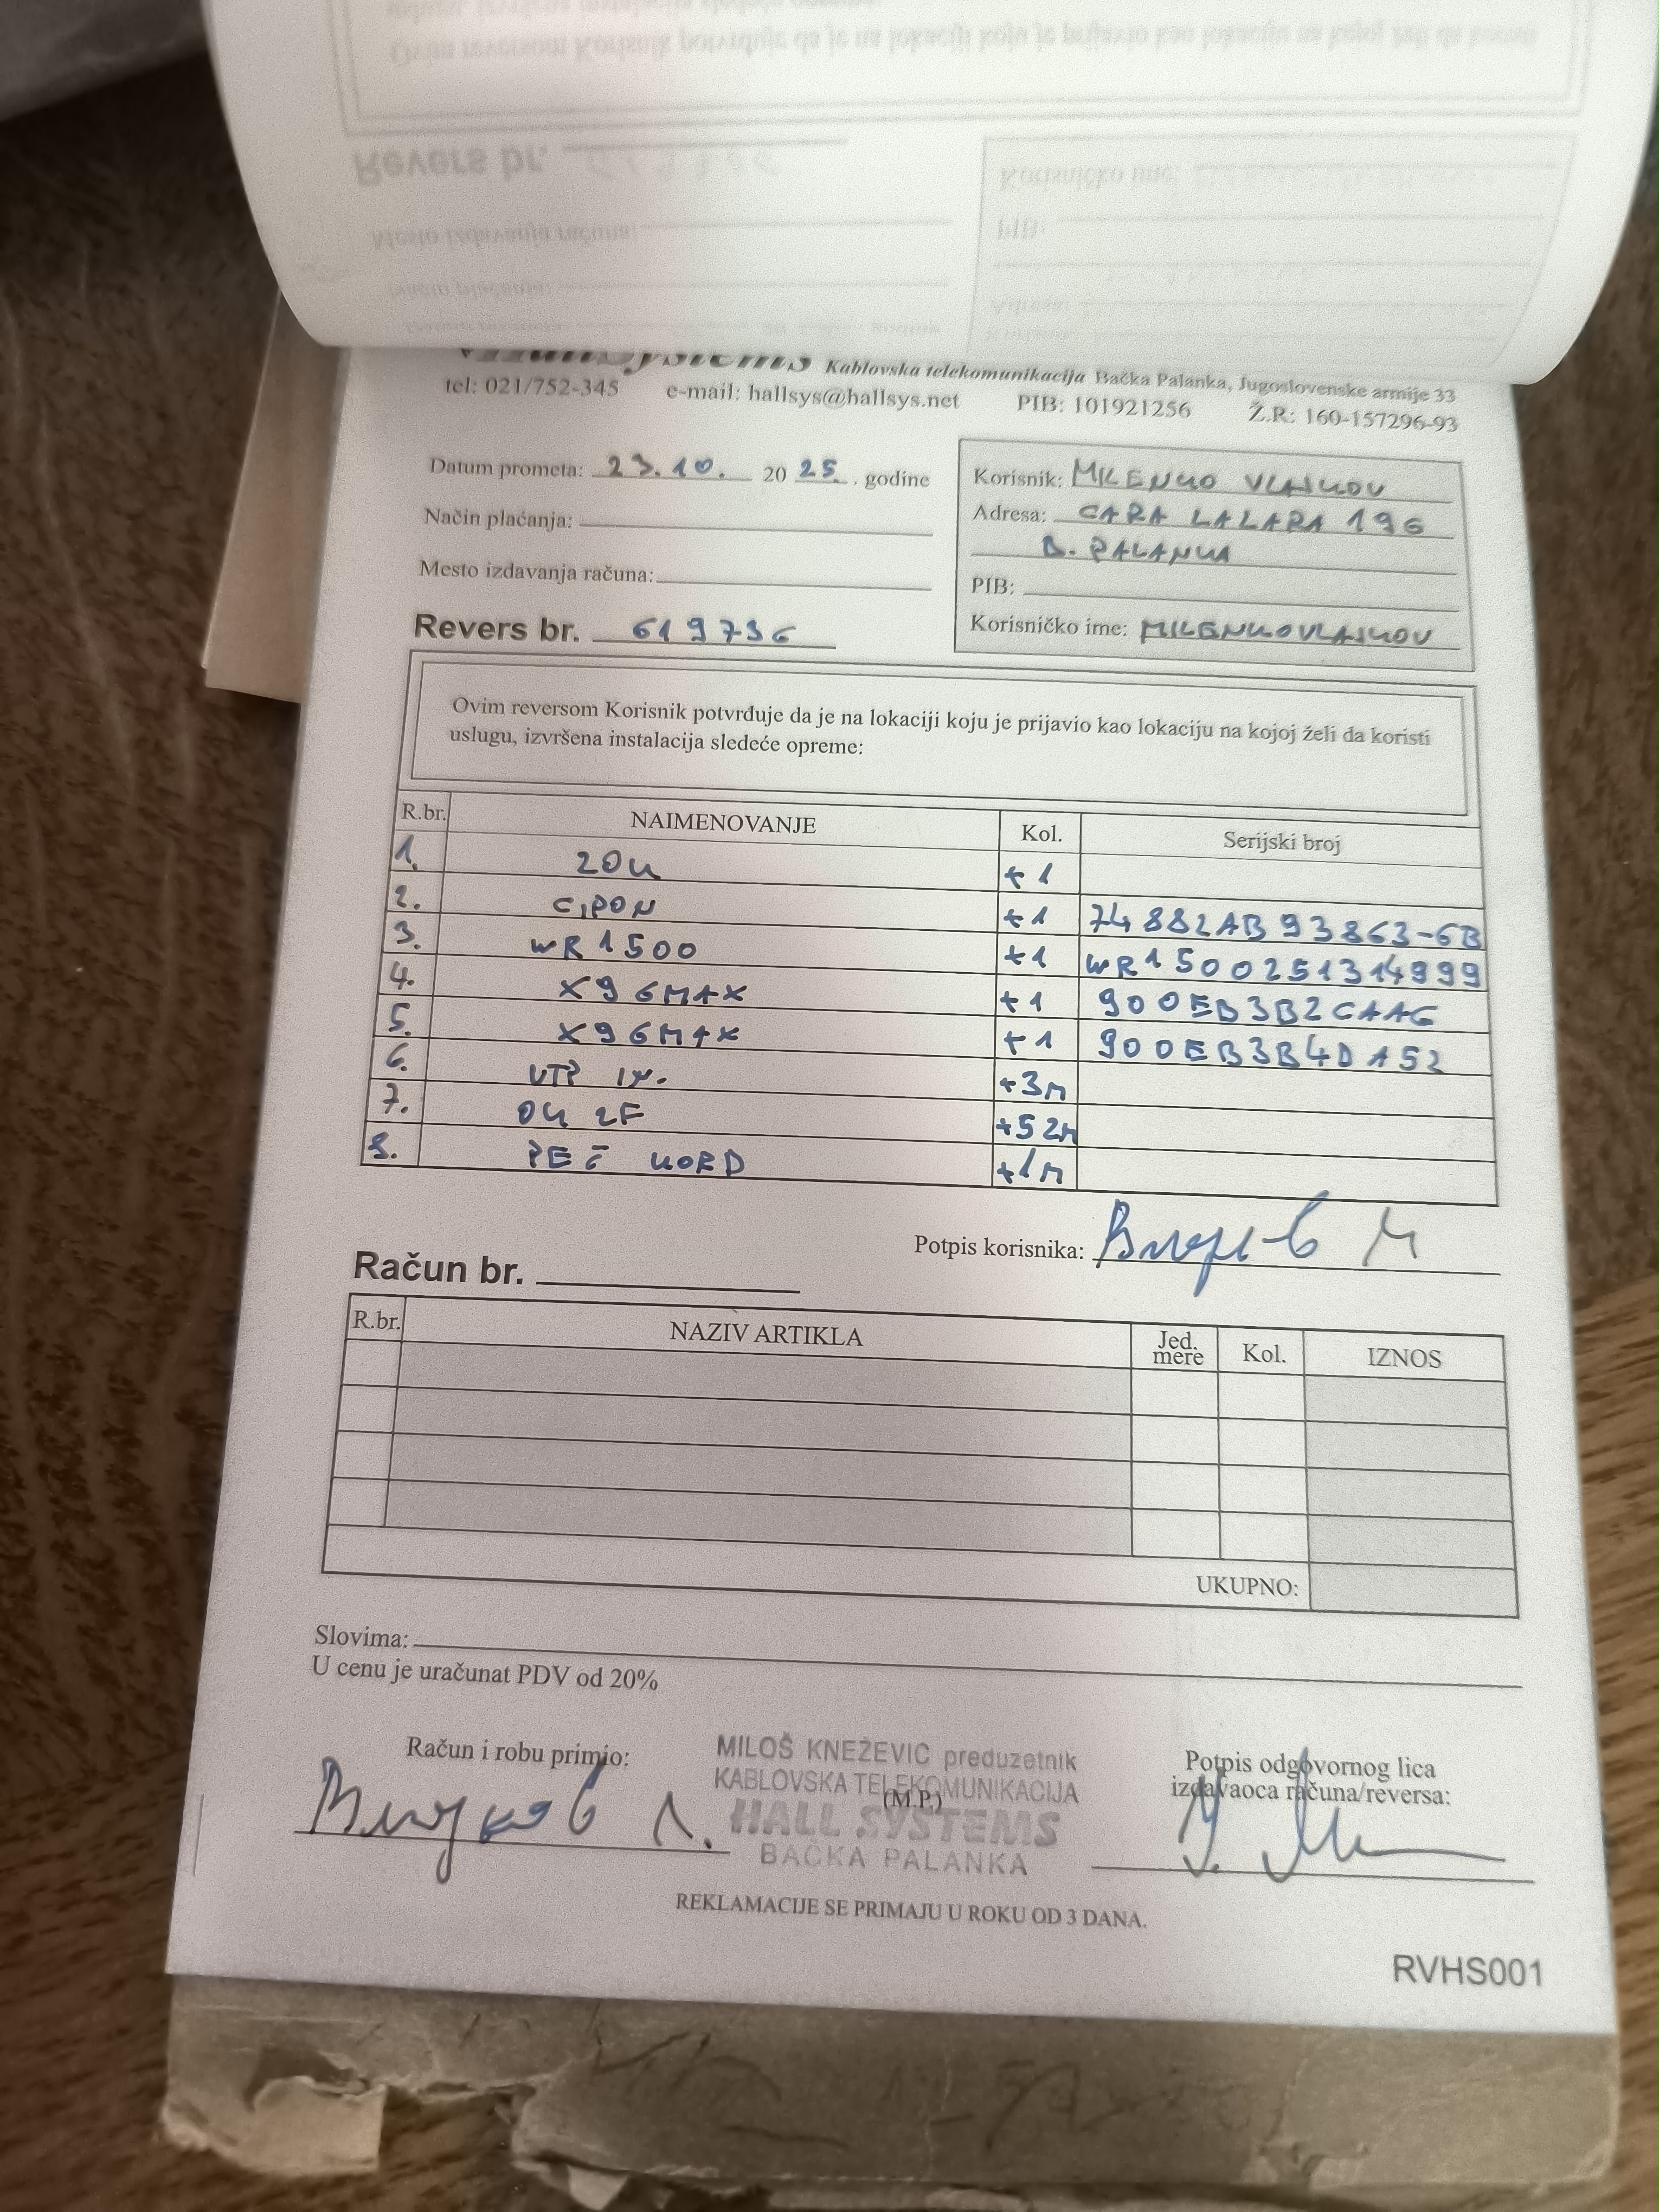 HallSystems Kablovska telekomunikacija Bačka Palanka, Jugoslovenske armije 33
tel: 021/752-345 e-mail: hallsys@hallsys.net PIB: 101921256 Ž.R: 160-157296-93
Datum prometa: 23.10. 20 25. . godine
Način plaćanja:
Mesto izdavanja računa:
Revers br. 619736
Korisnik: MILENKO VLAJKOV
Adresa: CARA LAZARA 196
B. PALANKA
PIB:
Korisničko ime: MILENKOVLAJKOV
Ovim reversom Korisnik potvrđuje da je na lokaciji koju je prijavio kao lokaciju na kojoj želi da koristi
uslugu, izvršena instalacija sledeće opreme:
R.br. NAIMENOVANJE Kol. Serijski broj
1. ZOK +1
2. GPON +1 74882AB93863-6B
3. WR1500 +1 WR1500251314999
4. X96MAX +1 900EB3B2CAAG
5. X96MAX +1 900EB3B4DA52
6. UTP +3M
7. OK 2F +52M
8. PEČ KORD +1M
Potpis korisnika:
Račun br.
R.br. NAZIV ARTIKLA Jed. mere Kol. IZNOS
UKUPNO:
Slovima:
U cenu je uračunat PDV od 20%
Račun i robu primio:
MILOŠ KNEŽEVIĆ preduzetnik
KABLOVSKA TELEKOMUNIKACIJA
(M.P.)
HALL SYSTEMS
BAČKA PALANKA
Potpis odgovornog lica
izdavaoca računa/reversa:
REKLAMACIJE SE PRIMAJU U ROKU OD 3 DANA.
RVHS001